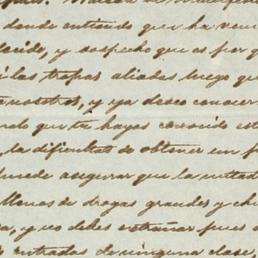 donde entiendo que ha ven
lacido, y sospecho que es por q
las tropas aliadas luego que
nosotros, y ya deseo conocer
que tu hayas conocido est
la dificultad de obtener un p
puede asegurar que la mitad
llenos de drogas grandes y ch
a, y no debes extrañar pues a
entradas de ninguna clase,